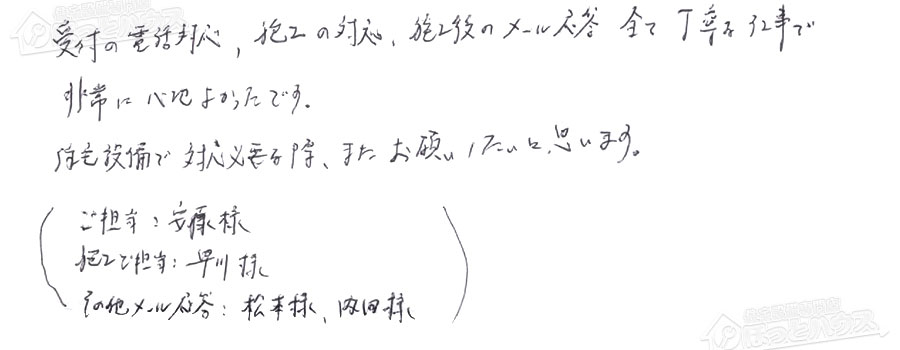 受付の電話対応、施工の対応、施工後のメール応答 全て丁寧な仕事で
非常に心地よかったです。
住宅設備で対応必要な際、またお願いしたいと思います。
ご担当：安藤様
施工ご担当：早川様
その他メール応答：松本様、内田様
住宅設備専門店
ほっとハウス